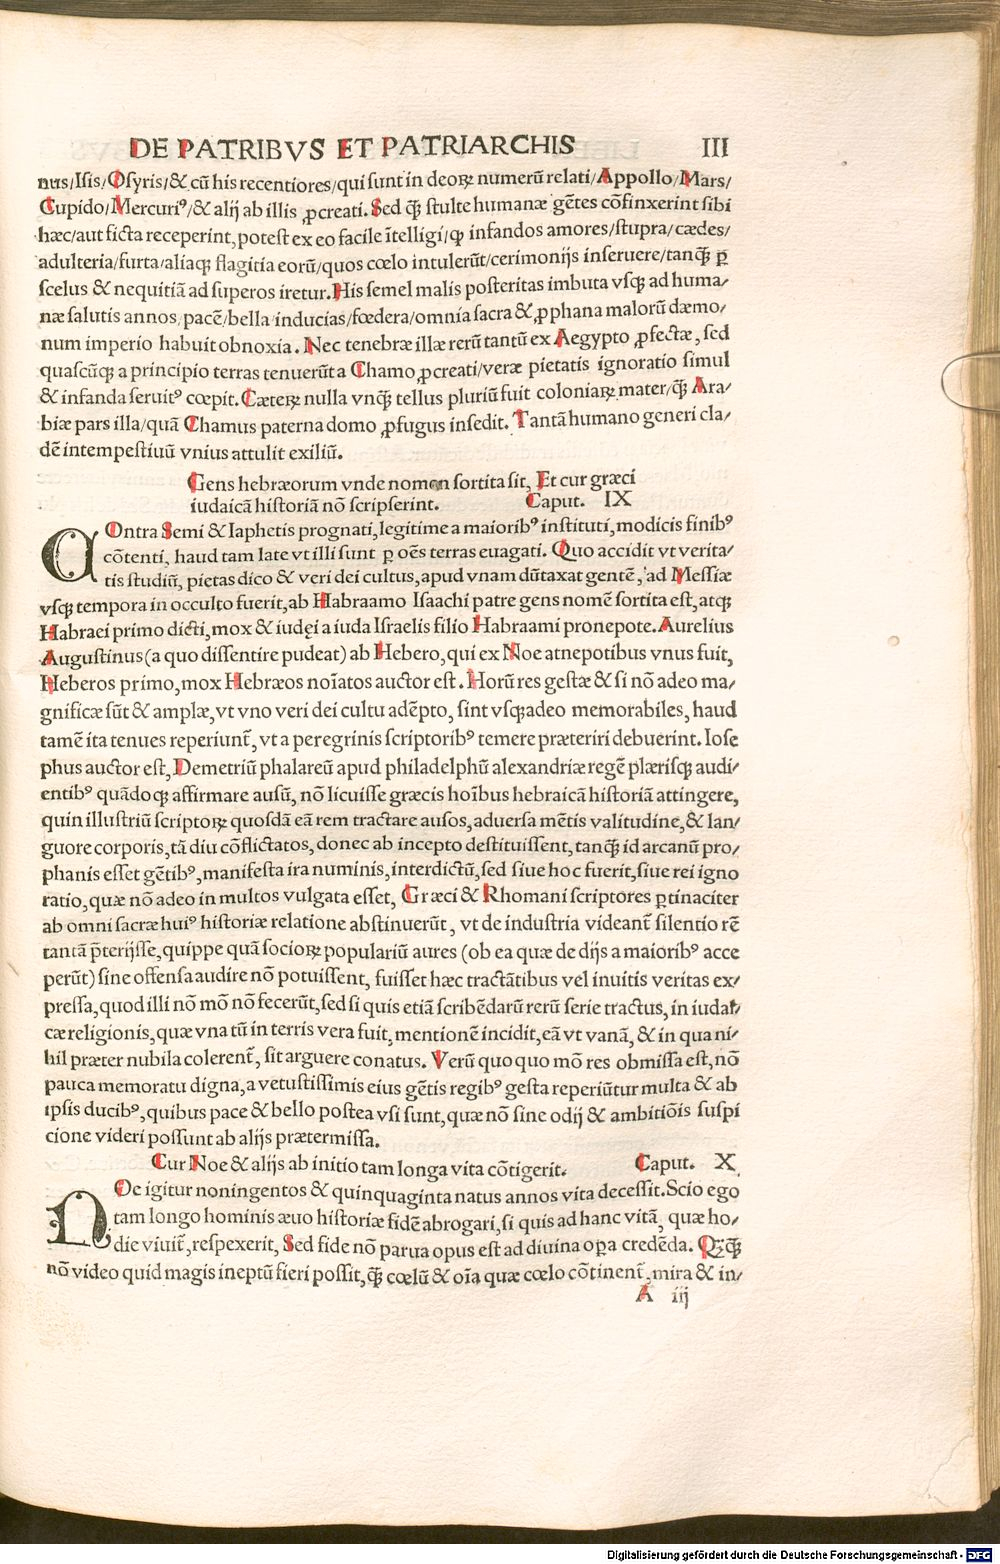 DE PATRIBVS ET PATRIARCHIS III
nus/Isis/Osyris/& cū his recentiores/qui sunt in deoꝝ numerū relati/Appollo/Mars/
Cupido/Mercuriꝰ/& alij ab illis ꝓcreati. Sed ꝙ̄ stulte humanæ gētes cōfinxerint sibi
hæc/aut ficta receperint, potest ex eo facile ītelligi/ꝙ infandos amores/stupra/cædes/
adulteria/furta/aliaꝗ flagitia eorū/quos cœlo intulerūt/cerimonijs inseruere/tanꝙ̄ ꝑ
scelus & nequitiā ad superos iretur. His semel malis posteritas imbuta vsꝗ ad huma/
næ salutis annos/pacē/bella/inducias/fœdera/omnia sacra & ꝓphana malorū dæmo/
num imperio habuit obnoxia. Nec tenebræ illæ rerū tantū ex Aegypto ꝓfectæ, sed
quascūꝗ a principio terras tenuerūt a Chamo ꝓcreati/veræ pietatis ignoratio simul
& infanda seruitꝰ cœpit. Cæteꝝ nulla vnꝙ̄ tellus pluriū fuit coloniaꝝ mater/ꝙ̄ Ara/
biæ pars illa/quā Chamus paterna domo ꝓfugus insedit. Tantā humano generi cla/
dē intempestiuū vnius attulit exiliū.
Gens hebræorum vnde nomen sortita sit, Et cur græci
iudaicā historiā nō scripserint. Caput. IX
COntra Semi & Iaphetis prognati, legitime a maioribꝰ instituti, modicis finibꝰ
cōtenti, haud tam late vt illi sunt ꝑ oēs terras euagati. Quo accidit vt verita/
tis studiū, pietas dico & veri dei cultus, apud vnam dūtaxat gentē, ad Messiæ
vsꝗ tempora in occulto fuerit, ab Habraamo Isaachi patre gens nomē sortita est, atꝗ
Habraei primo dicti, mox & iudęi a iuda Israelis filio Habraami pronepote. Aurelius
Augustinus (a quo dissentire pudeat) ab Hebero, qui ex Noe atnepotibus vnus fuit,
Heberos primo, mox Hebræos noīatos auctor est. Horū res gestæ & si nō adeo ma/
gnificæ sūt & amplæ, vt vno veri dei cultu adēpto, sint vsꝗadeo memorabiles, haud
tamē ita tenues reperiunt̄, vt a peregrinis scriptoribꝰ temere præteriri debuerint. Iose
phus auctor est, Demetriū phalareū apud philadelphū alexandriæ regē plærisꝗ audi/
entibꝰ quādoꝗ affirmare ausū, nō licuisse græcis hoībus hebraicā historiā attingere,
quin illustriū scriptoꝝ quosdā eā rem tractare ausos, aduersa mētis valitudine, & lan/
guore corporis, tā diu cōflictatos, donec ab incepto destituissent, tanꝙ̄ id arcanū pro/
phanis esset gētibꝰ, manifesta ira numinis, interdictū, sed siue hoc fuerit, siue rei igno
ratio, quæ nō adeo in multos vulgata esset, Græci & Rhomani scriptores ꝑtinaciter
ab omni sacræ huiꝰ historiæ relatione abstinuerūt, vt de industria videant̄ silentio rē
tantā p̄terijsse, quippe quā socioꝝ populariū aures (ob ea quæ de dijs a maioribꝰ acce
perūt) sine offensa audire nō potuissent, fuisset hæc tractātibus vel inuitis veritas ex/
pressa, quod illi nō mō nō fecerūt, sed si quis etiā scribēdarū rerū serie tractus, in iudai/
cæ religionis, quæ vna tū in terris vera fuit, mentionē incidit, eā vt vanā, & in qua ni/
hil præter nubila colerent̄, sit arguere conatus. Verū quo quo mō res obmissa est, nō
pauca memoratu digna, a vetustissimis eius gētis regibꝰ gesta reperiūtur multa & ab
ipsis ducibꝰ, quibus pace & bello postea vsi sunt, quæ nō sine odij & ambitiōis suspi
cione videri possunt ab alijs prætermissa.
Cur Noe & alijs ab initio tam longa vita cōtigerit. Caput. X
NOe igitur noningentos & quinquaginta natus annos vita decessit. Scio ego
tam longo hominis æuo historiæ fidē abrogari, si quis ad hanc vitā, quæ ho/
die viuit̄, respexerit, Sed fide nō parua opus est ad diuina oꝑa credēda. Qꝫꝙ̄
nō video quid magis ineptū fieri possit, ꝙ̄ cœlū & oīa quæ cœlo cōtinent̄, mira & in/
A iij
Digitalisierung gefördert durch die Deutsche Forschungsgemeinschaft - DFG